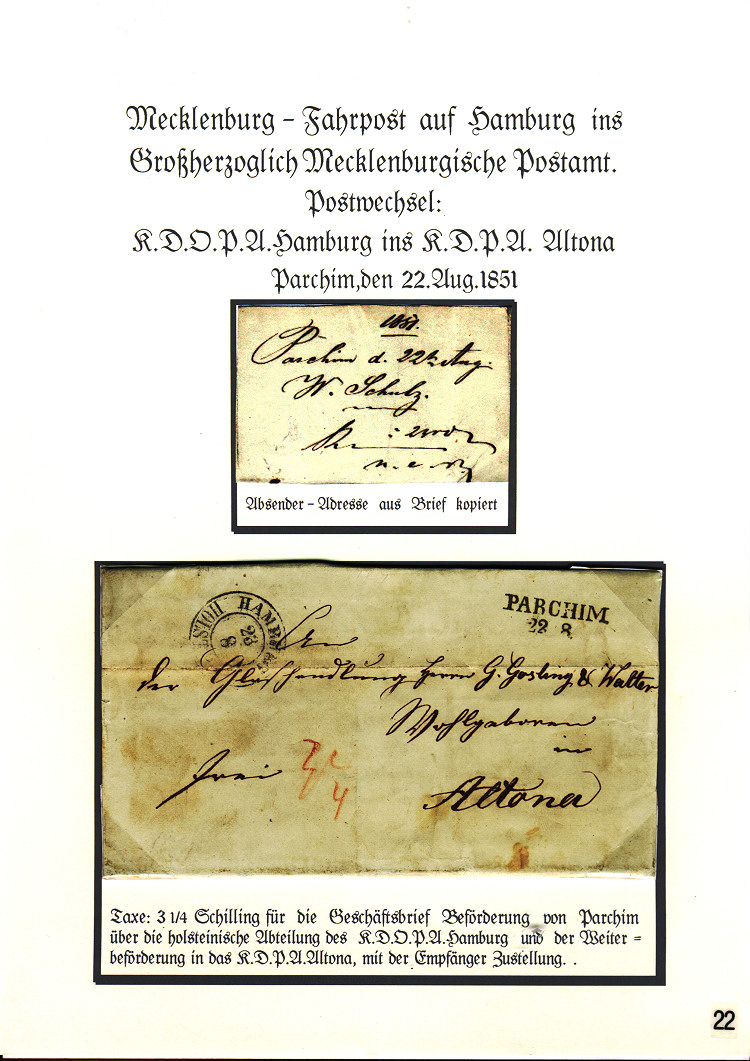 Mecklenburg – Fahrpost auf Hamburg ins
Großherzoglich Mecklenburgische Postamt.
Postwechsel:
K.D.O.P.A.Hamburg ins K.D.P.A. Altona
Parchim,den 22.Aug.1851
1851.
Parchim d. 22t Aug.
W. Schulz.
Absender – Adresse aus Brief kopiert
HAMB
HOLST
23
8
PARCHIM
22 8
der Glashandlung Herrn G. Gosling & Walter
Wohlgeboren
in
frei
4
Altona
Taxe: 3 1/4 Schilling für die Geschäftsbrief Beförderung von Parchim
über die holsteinische Abteilung des K.D.O.P.A.Hamburg und der Weiter =
beförderung in das K.D.P.A.Altona, mit der Empfänger Zustellung. .
22